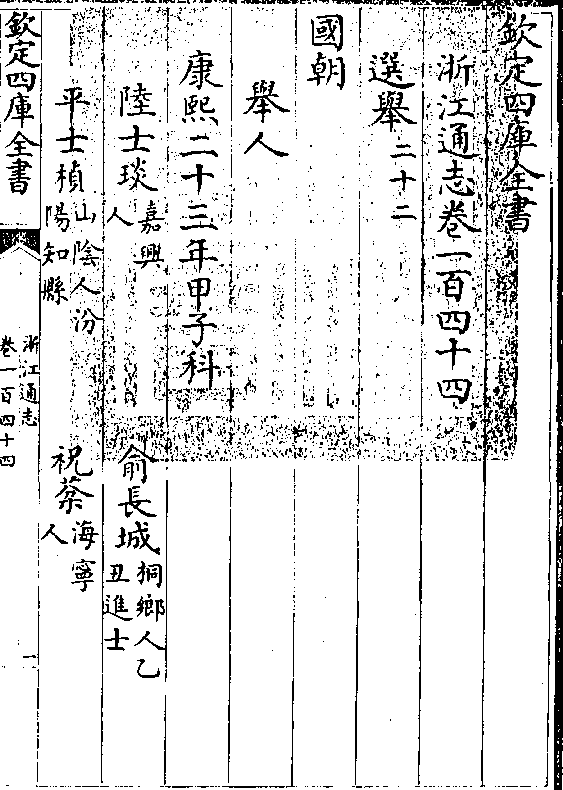 欽定四庫全書
浙江通志卷一百四十四
選舉二十二
國朝
舉人
康熙二十三年甲子科
陸士琰嘉興人
俞長城桐鄉人乙丑進士
平士楨山陰人汾陽知縣
祝蔡海寧人
欽定四庫全書
浙江通志
卷一百四十四
一